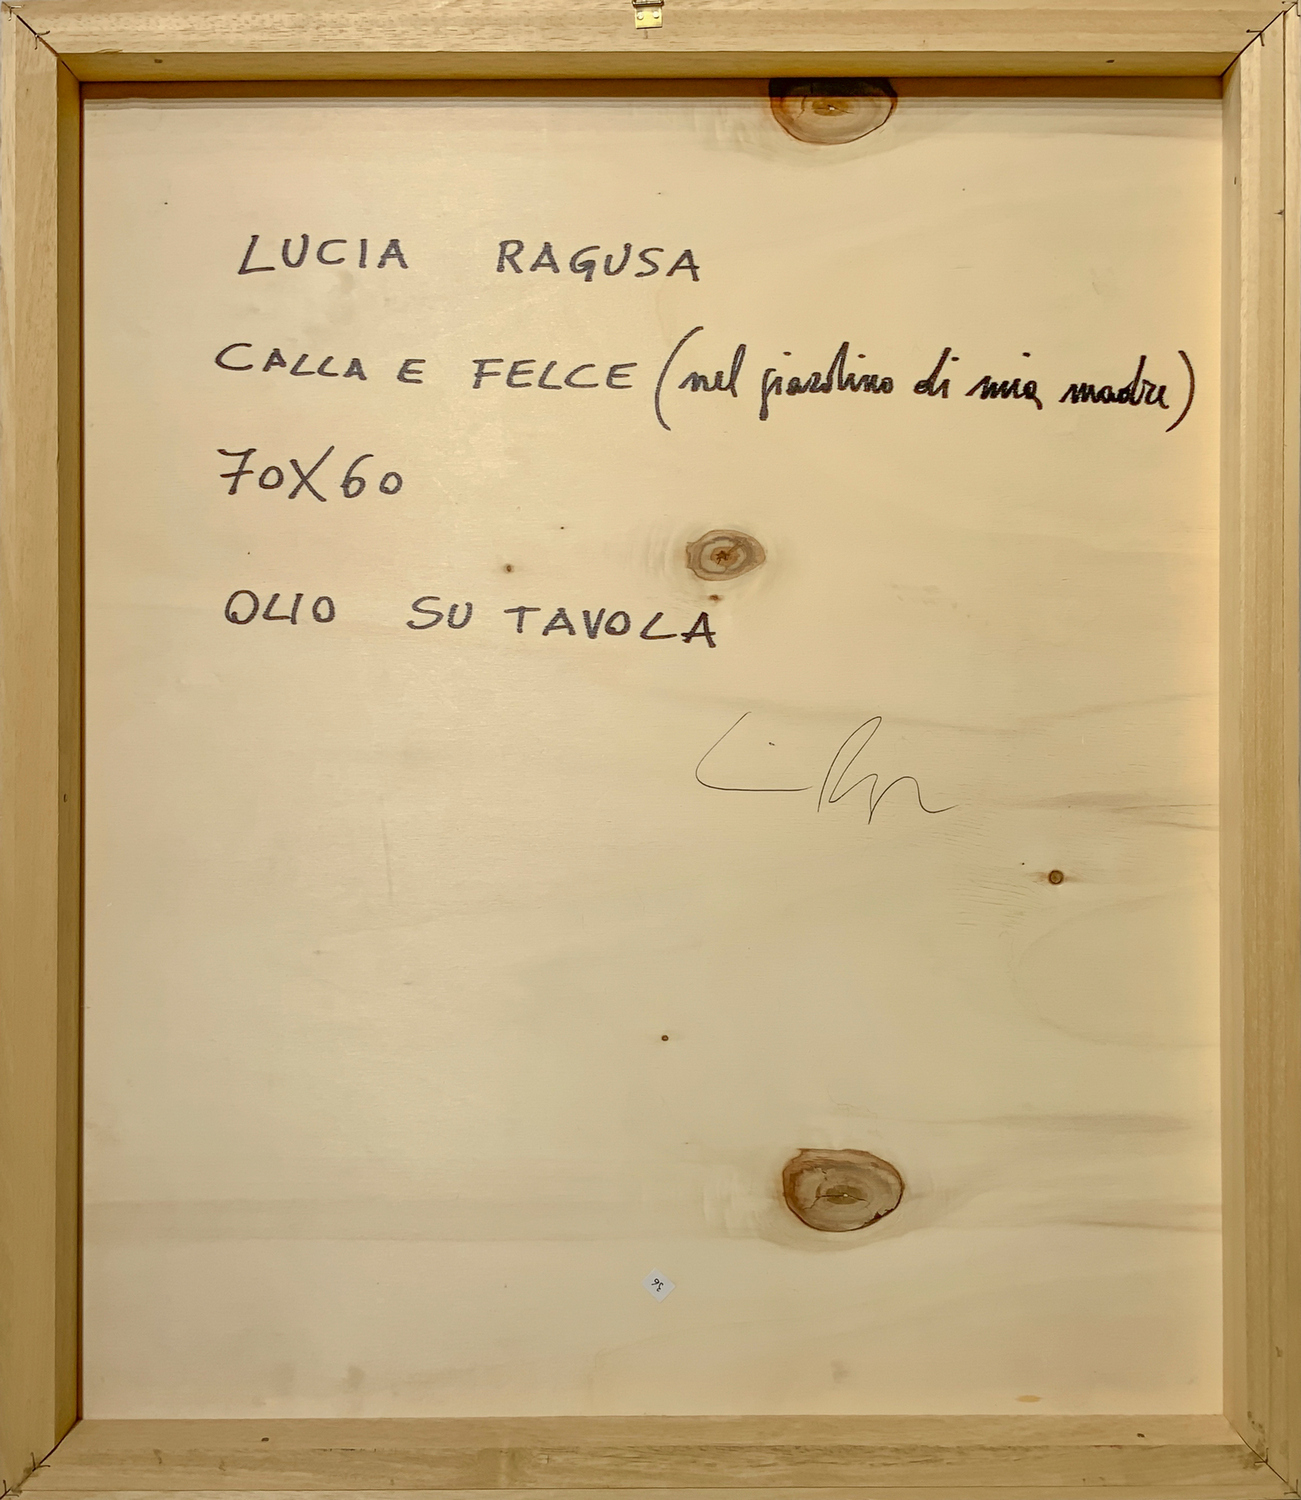 LUCIA RAGUSA
CALLA E FELCE (nel giardino di mia madre)
70X60
OLIO SU TAVOLA
36